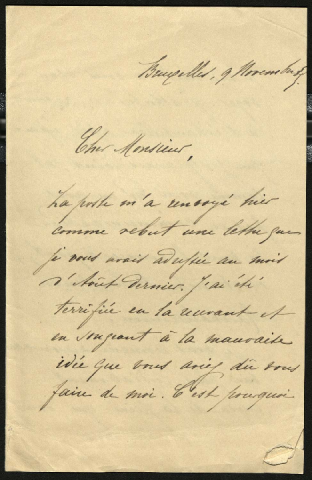 Bruxelles, 9 Novembre
Cher Monsieur,
La poste m'a renvoyé hier
comme rebut une lettre que
je vous avais adressée au mois
d'Août dernier. J'ai été
terrifiée en la recevant et
en songeant à la mauvaise
idée que vous aviez dû vous
faire de moi. C'est pourquoi